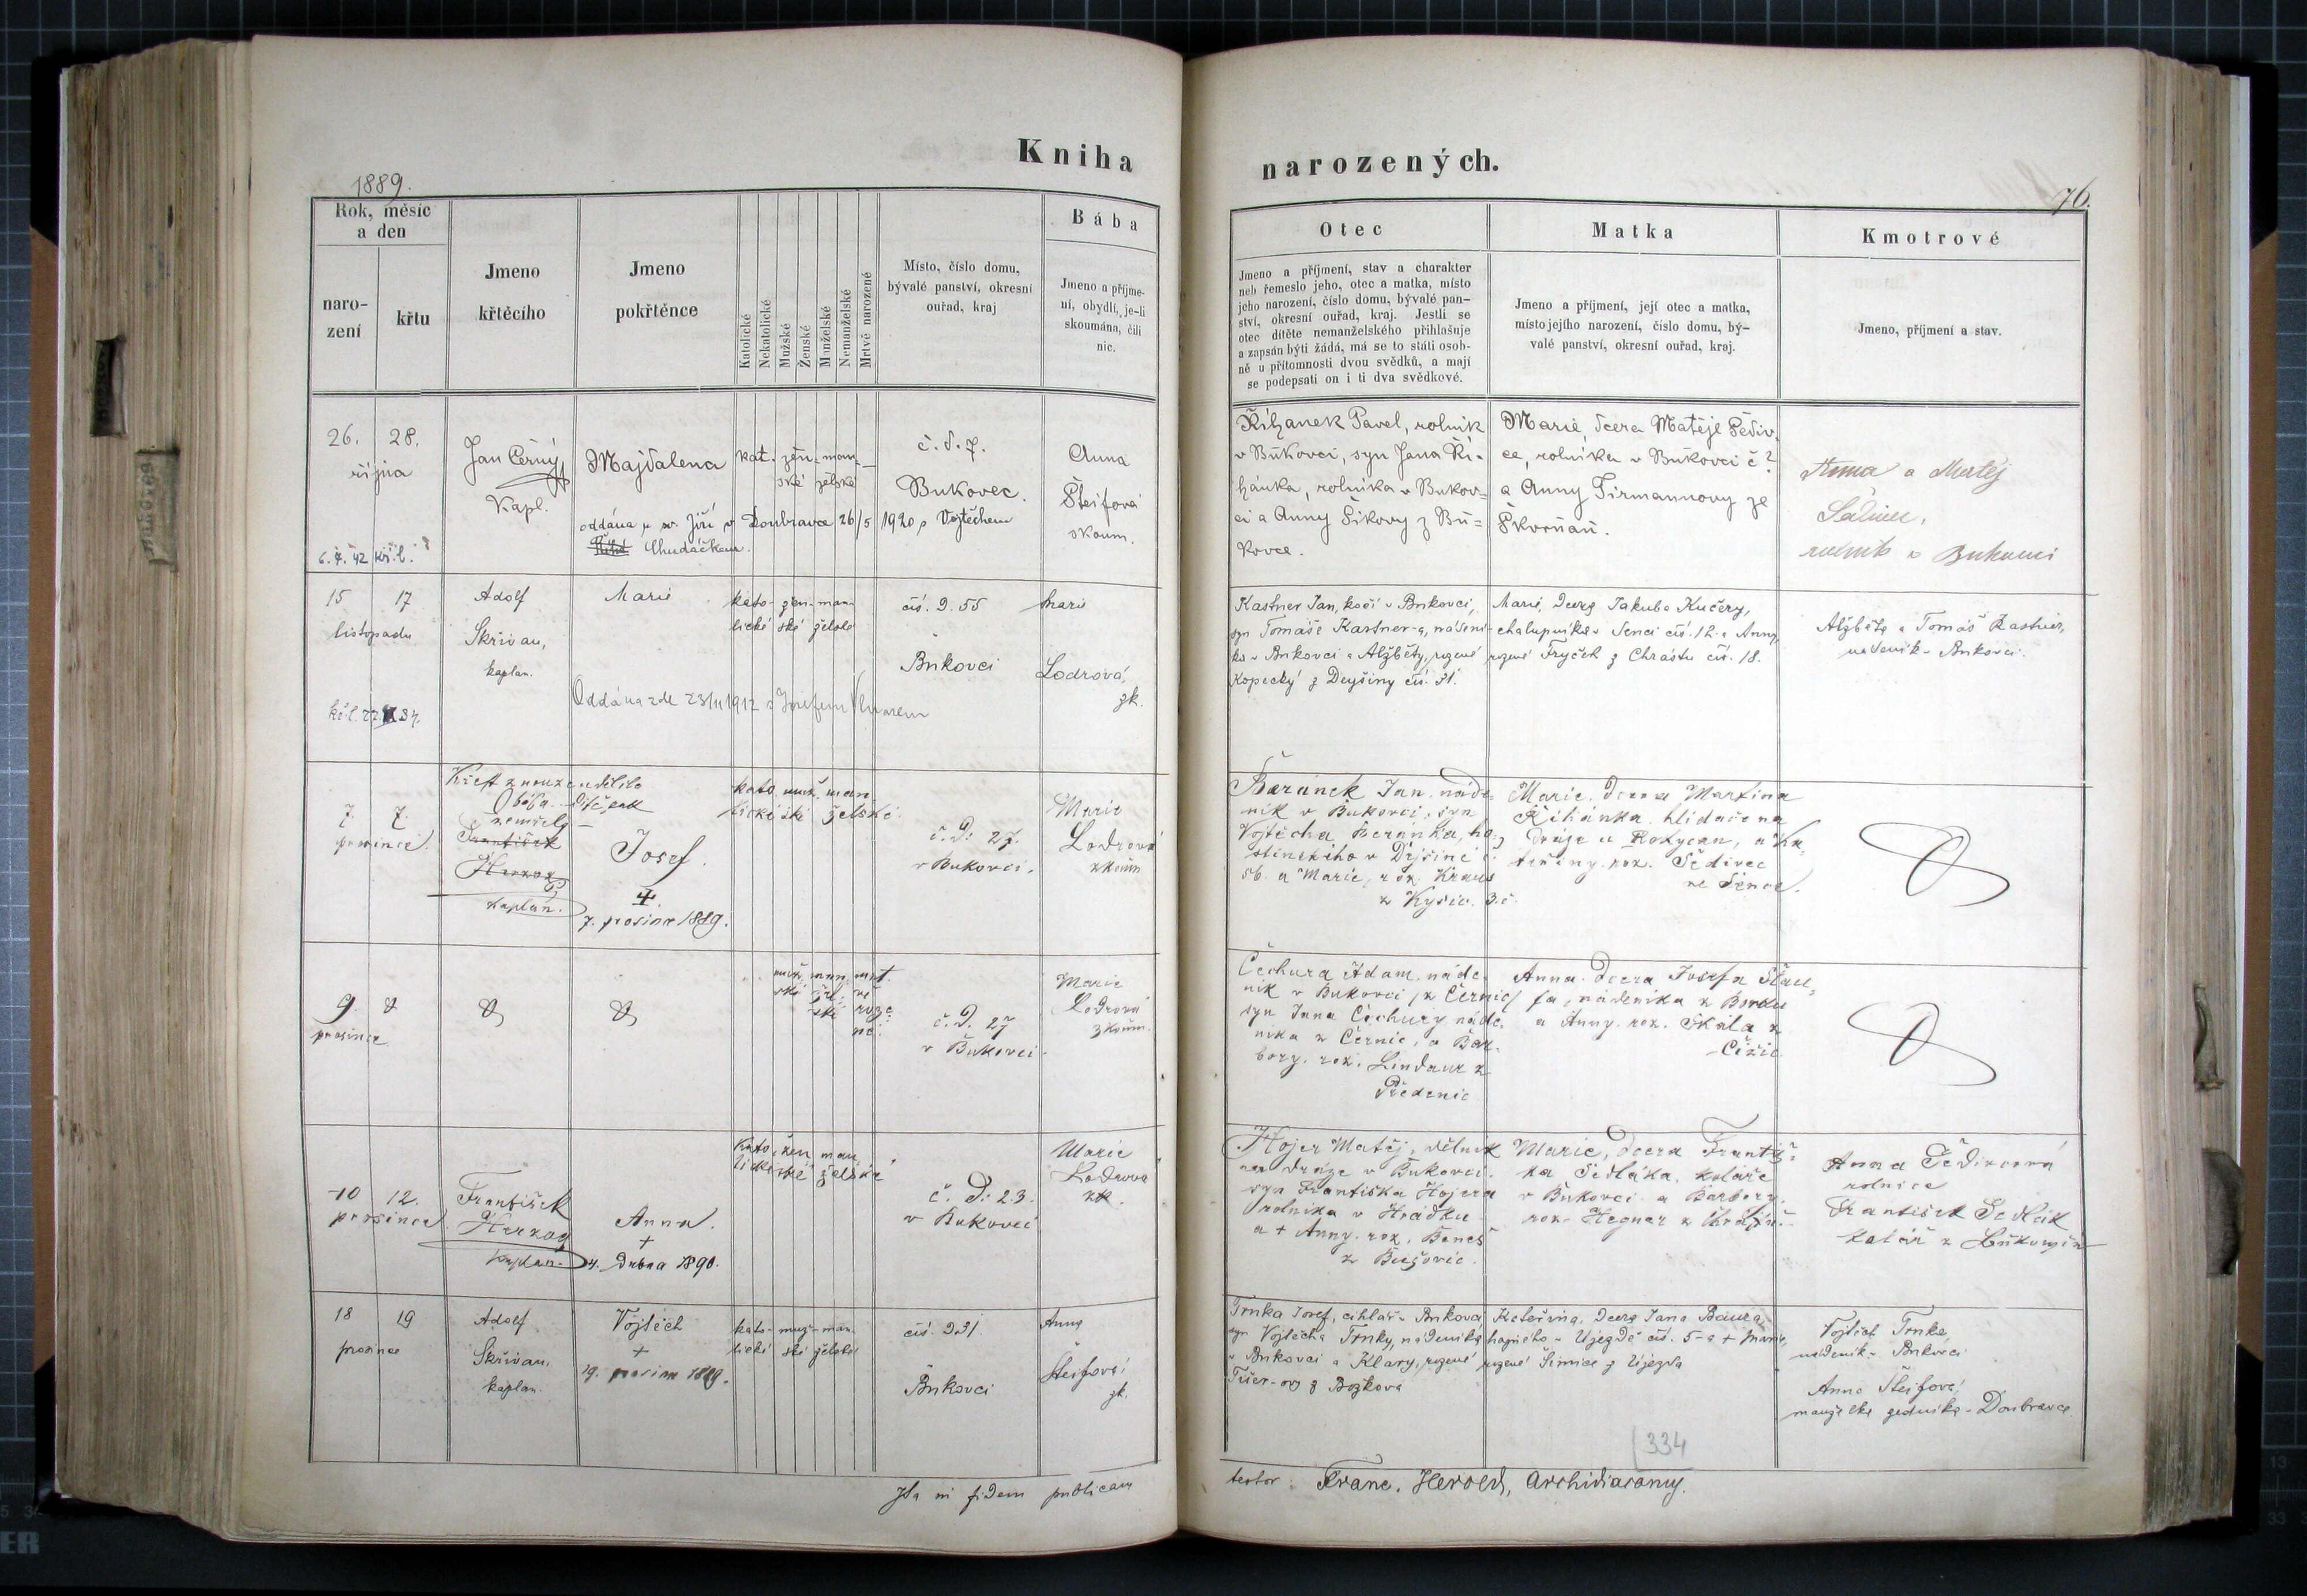 Kniha
narozených.
1889.
76.
Rok, měsíc
a den
naro-
zení
křtu
Jmeno
křtěcího
Jmeno
pokřtěnce
Katolické
Nekatolické
Mužské
Ženské
Manželské
Nemanželské
Mrtvě narozené
Místo, číslo domu,
bývalé panství, okresní
ouřad, kraj
Bába
Jmeno a příjme-
ní, obydlí, je-li
skoumána, čili
nic.
Otec
Jmeno a příjmení, stav a charakter
neb řemeslo jeho, otec a matka, místo
jeho narození, číslo domu, bývalé pan-
ství, okresní ouřad, kraj. Jestli se
otec dítěte nemanželského přihlašuje
a zapsán býti žádá, má se to státi osob-
ně u přítomnosti dvou svědků, a mají
se podepsati on i ti dva svědkové.
Matka
Jmeno a příjmení, její otec a matka,
místo jejího narození, číslo domu, bý-
valé panství, okresní ouřad, kraj.
Kmotrové
Jmeno, příjmení a stav.
26. 28.
října
6.7.42 kř.l.
Jan Černý,
Kapl.
Majdalena
oddána u sv. Jiří v Doubravce 26/5 1920 s Vojtěchem
Chudáčkem.
kat. žen- man-
ské želské
č. d. 7.
Bukovec.
Anna
Šteifová
skoum.
Řihanek Pavel, rolník
v Bukovci, syn Jana Ři-
hánka, rolníka v Bukov=
ci a Anny Šikovy z Bu=
kovce.
Marie, dcera Matěje Šediv-
ce, rolníka v Bukovci č 2
a Anny Tirmannovy ze
Škvrňan.
Anna a Matěj
rolník v Bukovci
15 17
listopadu
Adolf
Skřivan,
kaplan.
Marie
Oddána zde 23/11 1912 s Josefem
kato- žen- man-
lické ské želské
čís. d. 55
Bukovci
Marie
Lodrová,
zk.
Kastner Jan, kočí v Bukovci,
syn Tomáše Kastner-a, nádení-
ka v Bukovci a Alžběty, rozené
Kopecký z Deyšiny čís. 31.
Marie, dcera Jakuba Kučery,
chalupníka v Senci čís. 12. a Anny,
rozené Fryček z Chrástu čís. 18.
Alžběta a Tomáš Kastner,
nádeník v Bukovci.
7. 7.
prosince.
Křest z nouze udělila
bába. dítě pak
zemřelo
František
Herzog
kaplan.
Josef.
7. prosince 1889.
kato muž. man
lické ské želské.
č. d. 27.
v Bukovci.
Marie
Lodrová
zkoum
Beránek Jan. náde-
ník v Bukovci, syn
Vojtěcha Beránka, ho-
stinského v Dýšině č.
56. a Marie, roz. Kraus
z Kyšic. 3.č.
Marie. dcera Martina
Řihánka hlídače na
dráze u Rokycan, a Ka-
teřiny. roz. Šedivec
ze Sence.
9.
prosince
muž. man. mrt.
ské žel- vě
ské roze
né.
č. d. 27
v Bukovci.
Marie
Lodrová
zkoum.
Čechura Adam. náde-
ník v Bukovci (z Černic)
syn Jana Čechury náde-
níka z Černic, a Bar-
bory. roz. Lindaur z
Předenic
Anna. dcera Josefa Štau-
fa, nádeníka z Borku
a Anny. roz. Skála z
Čižic
10 12.
prosince
František
Herzog
kaplan.
Anna.
+
4. dubna 1890.
Kato. žen man
lické ské želské
č. d. 23.
v Bukovci
Marie
Lodrová
zk.
Hojer Matěj, dělník
na dráze v Bukovci.
syn Františka Hojera
rolníka v Hrádku
a + Anny. roz. Beneš
z Bušovic.
Marie, dcera Františ-
ka Sedláka. koláře
v Bukovci a Barbory.
roz. Hegner z
Anna Šedivcová
rolnice
František Sedlák
kolář z
18 19
prosince
Adolf
Skřivan,
kaplan.
Vojtěch
+
19. prosince 1889.
kato- muž- man-
lické ské želské
čís. d. 31.
Bukovci
Anna
Šteifová
zk.
Trnka Josef, cihlář v Bukovci,
syn Vojtěcha Trnky, nádeníka
v Bukovci a Klary, rozené
z Božkova
Kateřina, dcera Jana Baura,
hajného v Újezdě čís. 5 a + Marie,
rozené Šimice z Újezda
Vojtěch Trnka,
nádeník v Bukovci
Anna Šteifová,
manželka zedníka v Doubravce
334
Ita ni fidem publicam
testor: Franc. Herold, Archidiaconus.